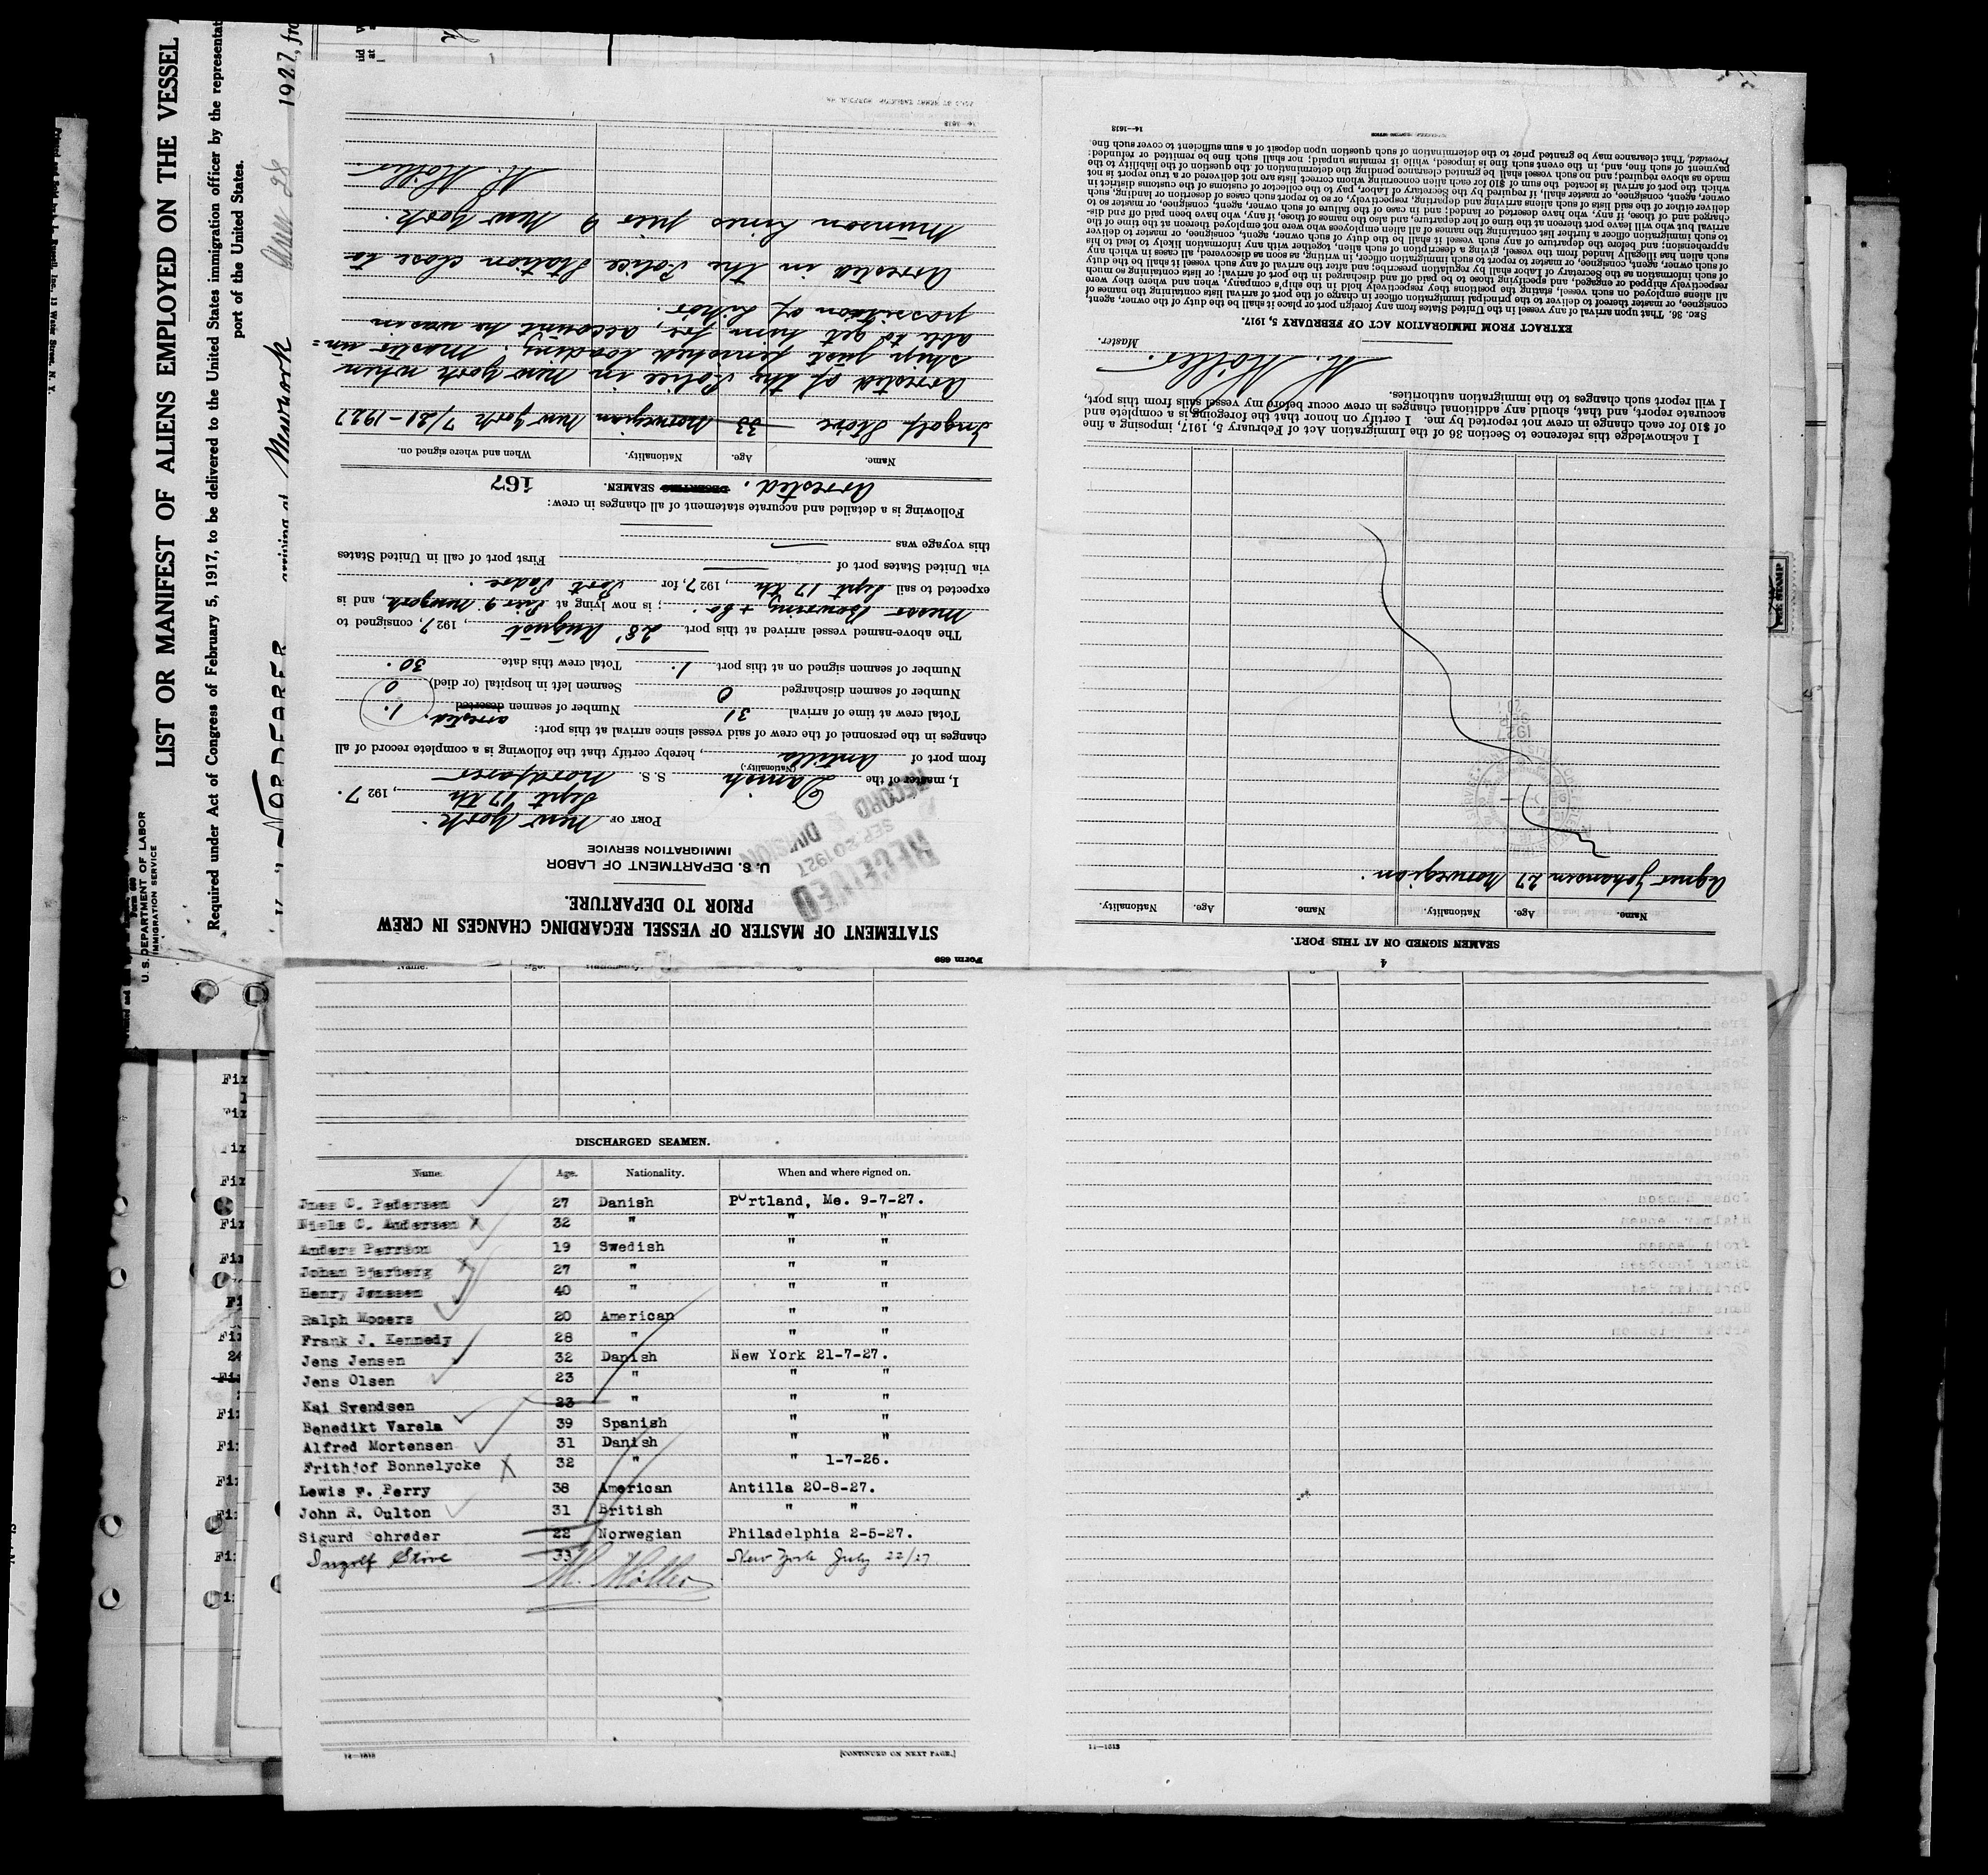 LIST OR MANIFEST OF ALIENS EMPLOYED ON THE VESSEL
Required under Act of Congress of February 5, 1917, to be delivered to the United States immigration officer by the representat
port of the United States.
U. S. DEPARTMENT OF LABOR
IMMIGRATION SERVICE
Form 689
STATEMENT OF MASTER OF VESSEL REGARDING CHANGES IN CREW
PRIOR TO DEPARTURE.
U. S. DEPARTMENT OF LABOR
IMMIGRATION SERVICE
RECEIVED
SEP 20 1927
RECORD DIVISION
PORT OF New York.
Sept 17th, 1927.
I, master of the Danish S. S. Nordfarer
(Nationality.)
from port of Antilla, hereby certify that the following is a complete record of all
changes in the personnel of the crew of said vessel since arrival at this port:
Total crew at time of arrival 31 Number of seamen deserted arrested. 1.
Number of seamen discharged 0 Seamen left in hospital (or died) 0
Number of seamen signed on at this port 1. Total crew this date 30.
The above-named vessel arrived at this port 28' August, 1927, consigned to
Messr Bowring + Co.; is now lying at Pier 9 New York, and is
expected to sail Sept 17th, 1927, for Port Padre.
via United States port of First port of call in United States
this voyage was
Following is a detailed and accurate statement of all changes in crew:
Arrested. DESERTING SEAMEN. 167
Name. Age. Nationality. When and where signed on.
Ingolf Stove 33 Norwegian New York 7/21-1927
Arrested of the Police in New York when
ship just finished loading. Master un=
able to get him for, account he was in
possition of Likör
Arrested in the Police Station close to
Munson Lines pier 9 New York.
M. Möller
14—1613
4
SEAMEN SIGNED ON AT THIS PORT.
Name. Age. Nationality. Name. Age. Nationality.
Agner Johansen 27 Norwegian.
I acknowledge this reference to Section 36 of the Immigration Act of February 5, 1917, imposing a fine
of $10 for each change in crew not reported by me. I certify on honor that the foregoing is a complete and
accurate report, and that, should any additional changes in crew occur before my vessel sails from this port,
I will report such changes to the immigration authorities.
M. Möller. Master.
EXTRACT FROM IMMIGRATION ACT OF FEBRUARY 5, 1917.
SEC. 36. That upon arrival of any vessel in the United States from any foreign port or place it shall be the duty of the owner, agent,
consignee, or master thereof to deliver to the principal immigration officer in charge of the port of arrival lists containing the names of
all aliens employed on such vessel, stating the positions they respectively hold in the ship's company, when and where they were
respectively shipped or engaged, and specifying those to be paid off and discharged in the port of arrival; or lists containing so much
of such information as the Secretary of Labor shall by regulation prescribe; and after the arrival of any such vessel it shall be the duty
of such owner, agent, consignee, or master to report to such immigration officer, in writing, as soon as discovered, all cases in which any
such alien has illegally landed from the vessel, giving a description of such alien, together with any information likely to lead to his
apprehension; and before the departure of any such vessel it shall be the duty of such owner, agent, consignee, or master to deliver
to such immigration officer a further list containing the names of all alien employees who were not employed thereon at the time of the
arrival but who will leave port thereon at the time of her departure, and also the names of those, if any, who have been paid off and dis-
charged and of those, if any, who have deserted or landed; and in case of the failure of such owner, agent, consignee, or master so to
deliver either of the said lists of such aliens arriving and departing, respectively, or so to report such cases of desertion or landing, such
owner, agent, consignee, or master shall, if required by the Secretary of Labor, pay to the collector of customs of the customs district in
which the port of arrival is located the sum of $10 for each alien concerning whom correct lists are not delivered or a true report is not
made as above required; and no such vessel shall be granted clearance pending the determination of the question of the liability to the
payment of such fine, and, in the event such fine is imposed, while it remains unpaid; nor shall such fine be remitted or refunded:
Provided, That clearance may be granted prior to the determination of such question upon deposit of a sum sufficient to cover such fine.
14—1613
DISCHARGED SEAMEN.
Name. Age. Nationality. When and where signed on.
Jnes C. Pedersen 27 Danish Portland, Me. 9-7-27.
Niels C. Andersen 32 " " "
Anders Persson 19 Swedish " "
Johan Bjerberg 27 " " "
Henry Jønssen 40 " " "
Ralph Mooers 20 American " "
Frank J. Kennedy 28 " " "
Jens Jensen 32 Danish New York 21-7-27.
Jens Olsen 23 " " "
Kai Svendsen 23 " " "
Benedikt Varela 39 Spanish " "
Alfred Mortensen 31 Danish " "
Frithjof Bonnelycke 32 " " 1-7-26.
Lewis F. Perry 38 American Antilla 20-8-27.
John R. Oulton 31 British " "
Sigurd Schrøder 22 Norwegian Philadelphia 2-5-27.
Ingolf Stove 33 New York July 22/27
M. Möller
14—1613
[CONTINUED ON NEXT PAGE.]
14—1613